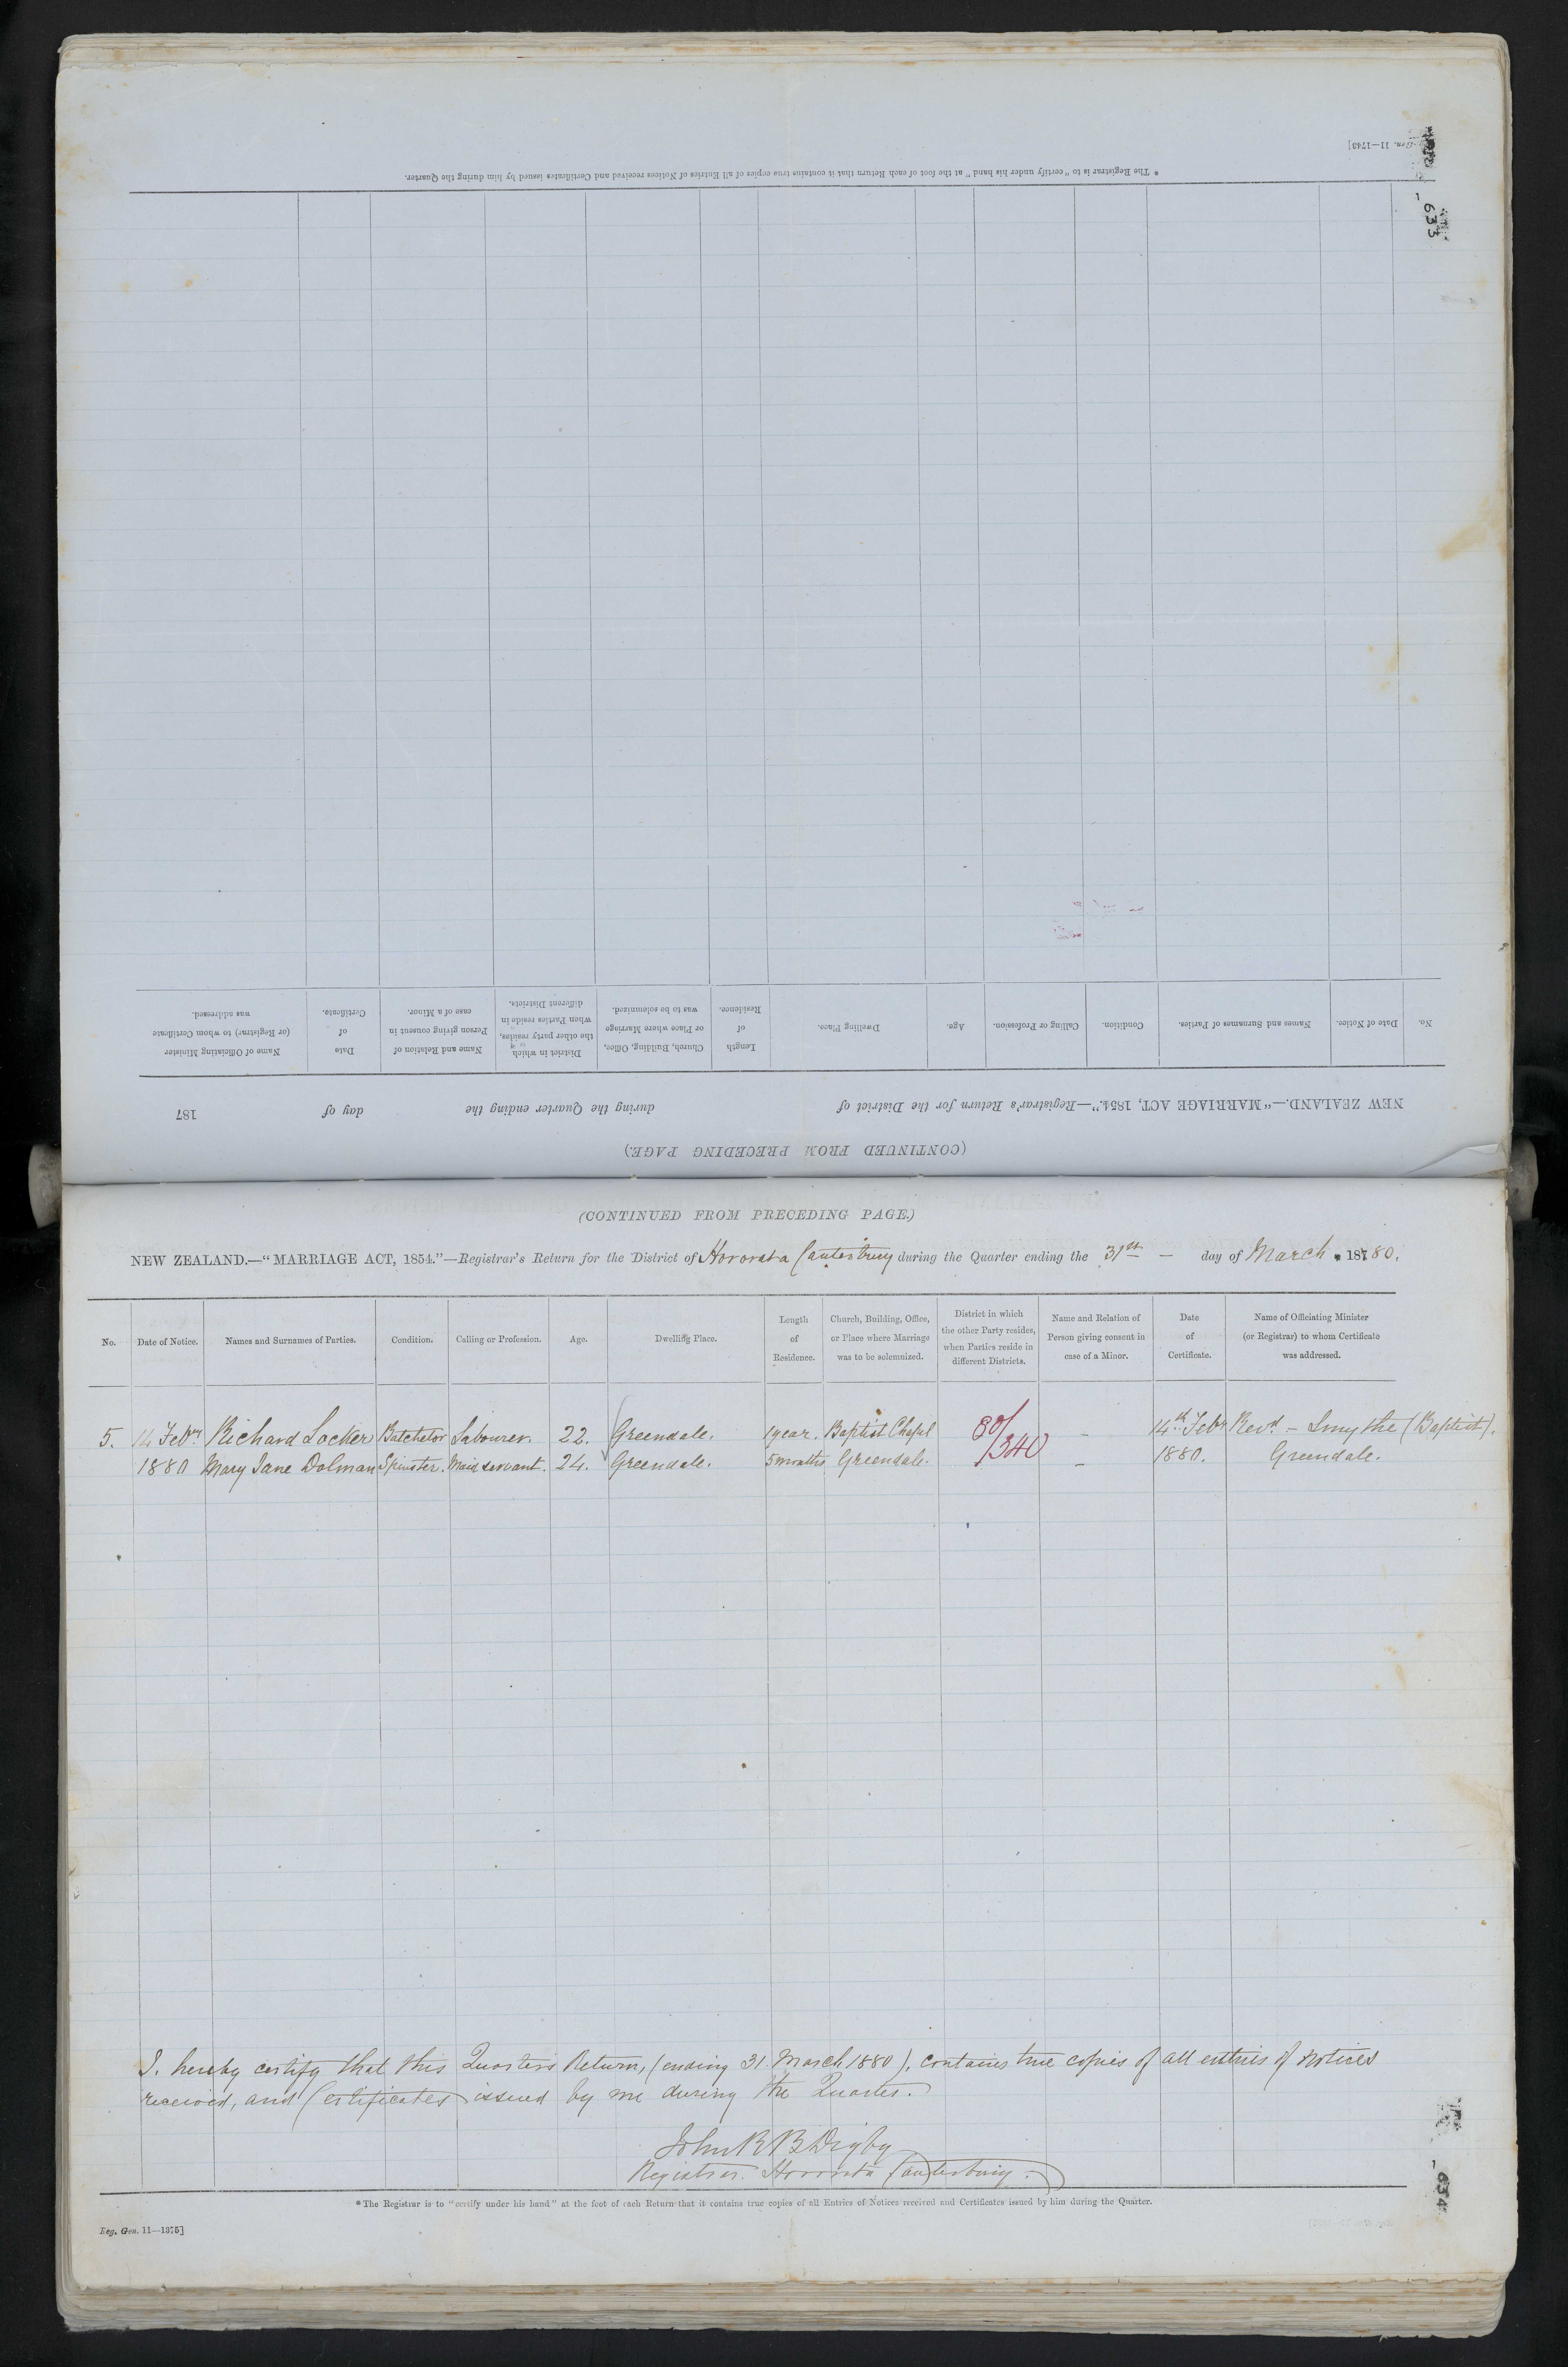 Reg. Gen. 11—1743]
633
* The Registrar is to "certify under his hand" at the foot of each Return that it contains true copies of all Entries of Notices received and Certificates issued by him during the Quarter.
No.
Date of Notice.
Names and Surnames of Parties.
Condition.
Calling or Profession.
Age.
Dwelling Place.
Length
of
Residence.
Church, Building, Office,
or Place where Marriage
was to be solemnized.
District in which
the other party resides,
when Parties reside in
different Districts.
Name and Relation of
Person giving consent in
case of a Minor.
Date
of
Certificate.
Name of Officiating Minister
(or Registrar) to whom Certificate
was addressed.
NEW ZEALAND.—"MARRIAGE ACT, 1854."—Registrar's Return for the District of during the Quarter ending the day of 187
(CONTINUED FROM PRECEDING PAGE.)
(CONTINUED FROM PRECEDING PAGE.)
NEW ZEALAND.—"MARRIAGE ACT, 1854."—Registrar's Return for the District of Hororata Canterbury during the Quarter ending the 31st — day of March 18780.
No.
Date of Notice.
Names and Surnames of Parties.
Condition.
Calling or Profession.
Age.
Dwelling Place.
Length
of
Residence.
Church, Building, Office,
or Place where Marriage
was to be solemnized.
District in which
the other Party resides,
when Parties reside in
different Districts.
Name and Relation of
Person giving consent in
case of a Minor.
Date
of
Certificate.
Name of Officiating Minister
(or Registrar) to whom Certificate
was addressed.
5. 14 Febry Richard Locker Batchelor Labourer. 22. Greendale. 1 year. Baptist Chapel 80/340 – 14th Feby Revd. – Smythe (Baptist).
1880 Mary Jane Dolman Spinster. Maid servant. 24. Greendale. 5 months Greendale. – 1880. Greendale.
I. hereby certify that this Quarters Return, (ending 31 March 1880), contains true copies of all entries of Notices
received, and Certificates issued by me during the Quarter.
John R B Digby
Registrar. Hororata Canterbury.
* The Registrar is to "certify under his hand" at the foot of each Return that it contains true copies of all Entries of Notices received and Certificates issued by him during the Quarter.
Reg. Gen. 11—1375]
634